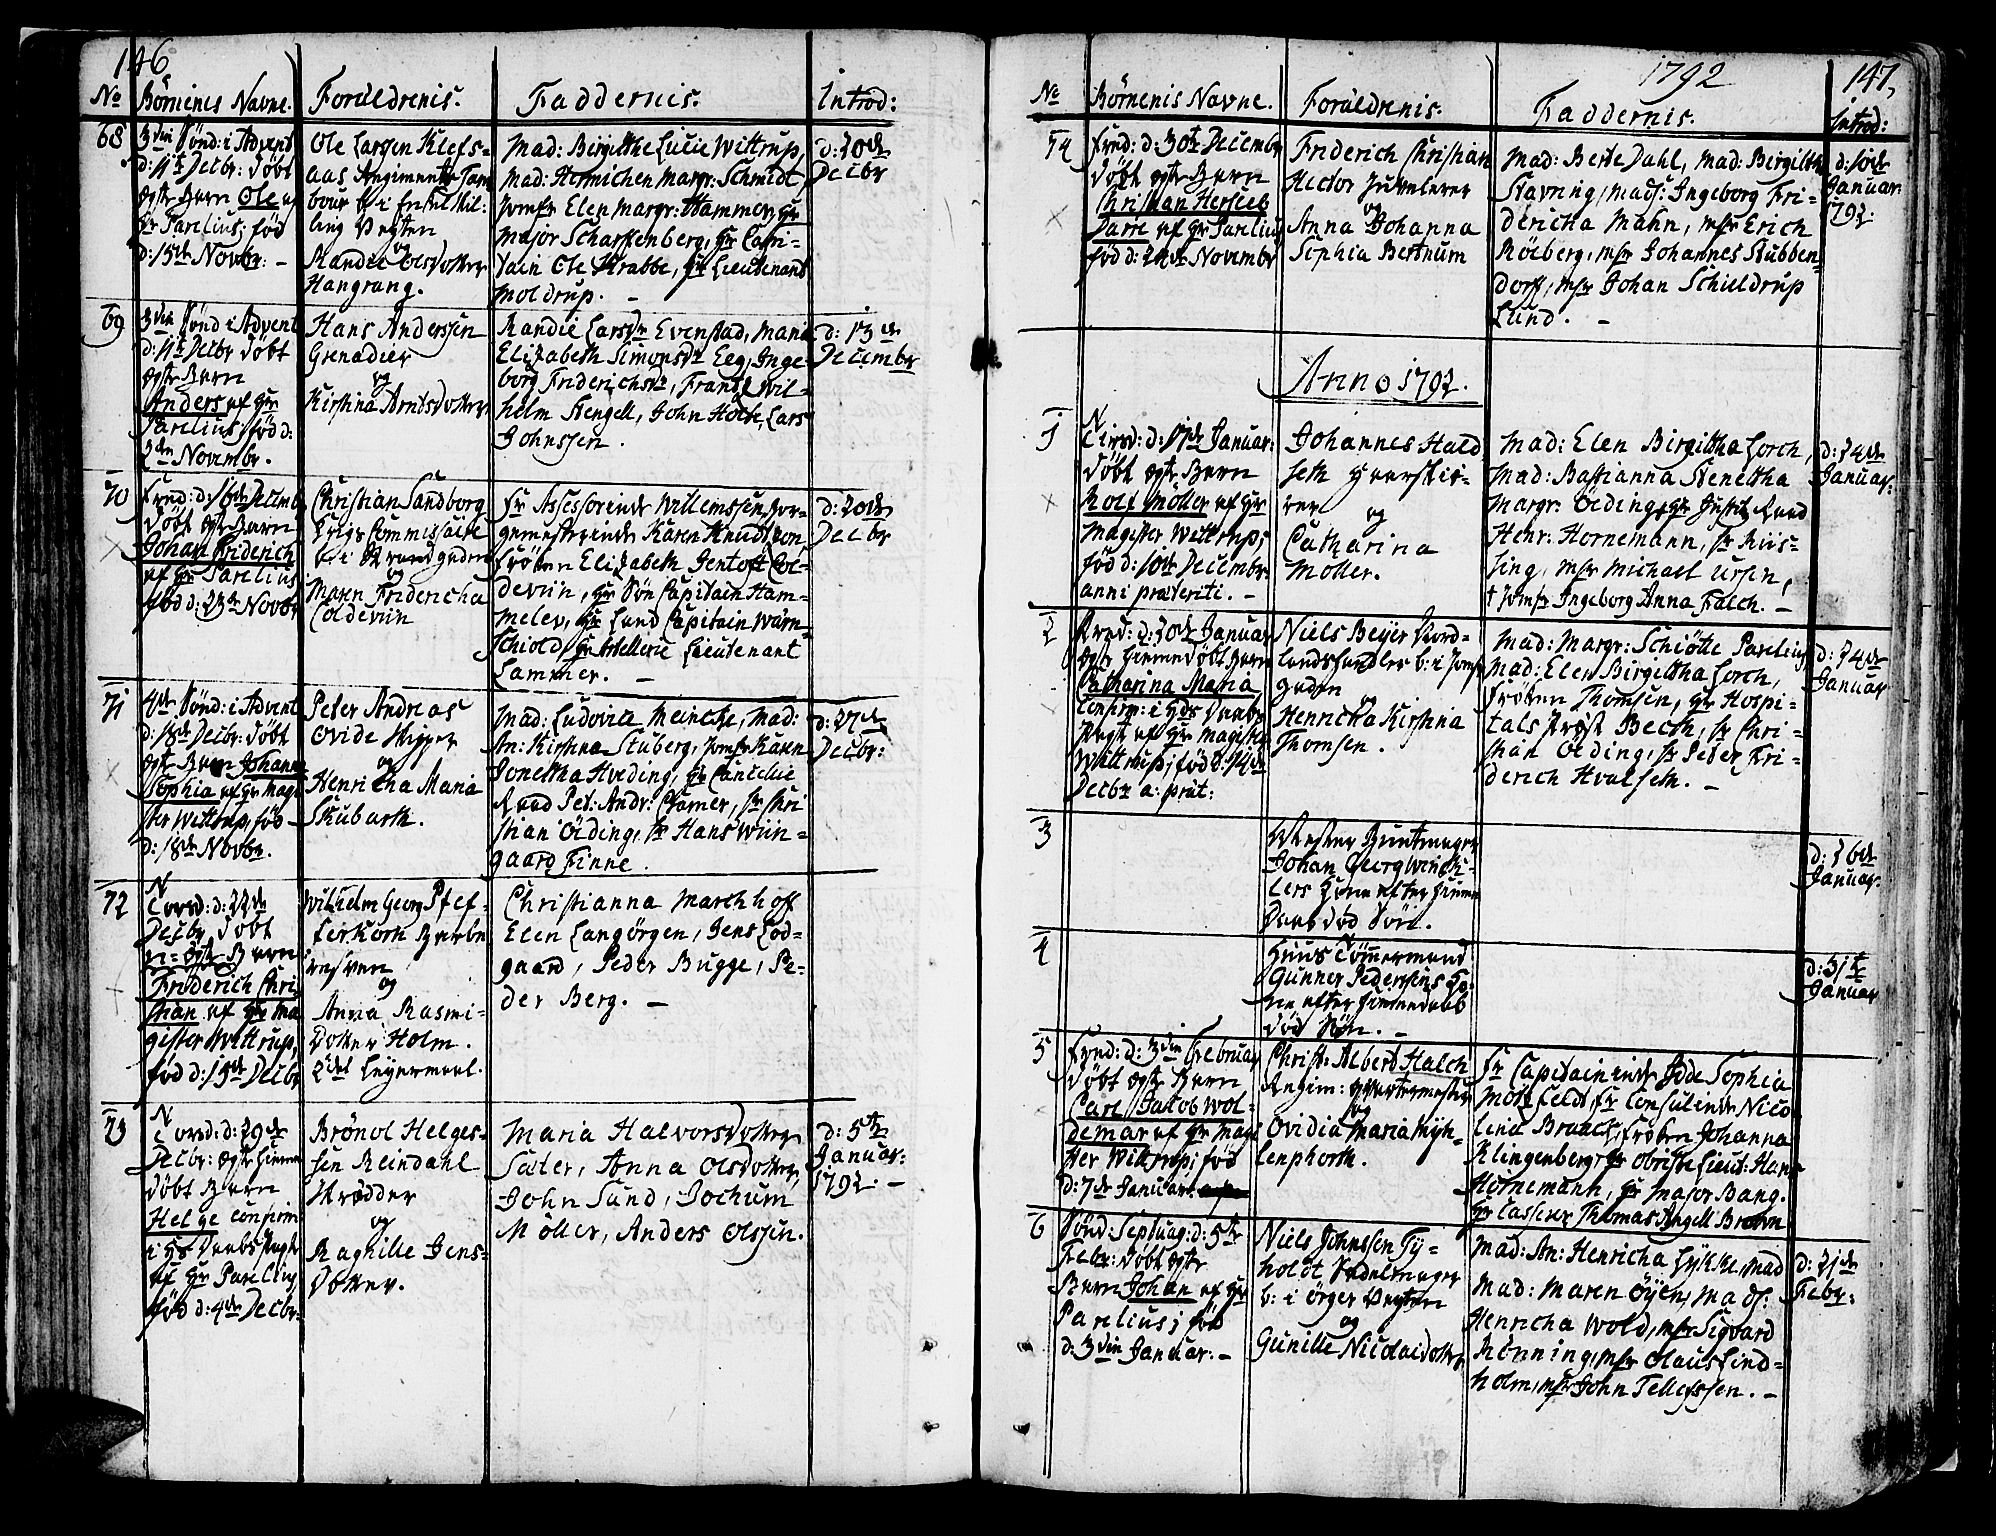 146
No Börnenes Navne. Forældrenis. Faddernis. Introd:
68
3die Sönd: i Advent
d: 11te Decbr: döbt
ægte Barn Ole af
Hr Parelius, föd
d: 15de Novbr: –
Ole Larsen Klefs-
aas Regiments Tam
bour b: i Enkel Kil-
ling Vegten
og
Randie Olsdotter
Hangrang.
Mad: Birgitthe Lucie Wittrup,
Mad: Hermichen Margr: Schmidt
Jomfr Elen Margr: Hammer, Hr
Major Scharffenberg, Hr Capi-
tain Ole Krabbe, Hr Lieutenant
Moldrup. –
d: 20de
Decbr
69
3die Sönd i Advent
d: 11te Decbr döbt
ægte Barn
Anders af Hr
Parelius, föd d:
2den Novembr.
Hans Anderssen
Grenadier
og
Kirstina Arntsdotter
Randie Larsdr Evenstad, Maria
Elizabeth Simonsdr Eeg, Inge-
borg Friderichsdr, Frantz Wil-
helm Stengell, John Holte, Lars
Johnssen.
d: 13de
December
70
Fred: d: 16de Decemb
döbt ægte Barn
Johan Friderich
af Hr Parelius
föd d: 23de Novbr
Christian Sandborg
Krigs Commissaire
b: i Strandgaden
og
Maren Fridericha
Coldeviin
Fr Assessorinde Willemssen, Bor-
gemesterinde Karen Knudtzon
Fröken Elizabeth Jentoft Col-
deviin, Hr Söe Capitain Ham-
melev, Hr Land Capitain Wärn-
schiold, Hr Artellerie Lieutenant
Lammer. –
d: 20de
Decbr
71
4de Sönd: i Advent
d: 18de Decbr: döbt
ægte Barn Johanna
Sophia af Hr Magi
ster Wittrup, föd
d: 18de Novbr.
Peter Andreas
Ovide Skipper
og
Henricha Maria
Skubarth.
Mad: Ludovica Meincke, Mad:
An: Kirstina Stuberg, Jomfr Karen
Jonetha Hveding, Hr Cancelie
Raad Pet: Andr: Cramer, Sr Chri
stian Öiding, Sr Hans Wiin-
gaard Finne.
d: 27de
Decbr:
72
N
Torsd: d: 22de
Decbr döbt
u-ægte Barn
Friderich Chri-
stian af Hr Ma
gister Wittrup,
föd d: 15de Decbr
Wilhelm Georg Pfef-
ferkorn Barbe
resven
og
Anna Rasmi-
dotter Holm.
2det Leyermaal.
Christianna Marchhoff
Elen Langörgen, Jens Lod-
gaard, Peder Bugge, Pe-
der Berg. –
73
N
Torsd: d: 29de
Decbr: ægte Hieme
döbt Barn
Helge confirm
i Hs Daabs Pagt
af Hr Parelius
föd d: 4de Decbr:
Brönol Helges-
sen Reindahl
Skrædder
og
Ragnille Jens-
dotter.
Maria Halvorsdotter
Sæter, Anna Olsdotter,
John Sund, Jochum
Möller, Anders Olssen.
d: 5te
Januar:
1792. –
1792 147,
No Börnenis Navne. Forældrenis. Faddernis. Introd:
74
Fred: d: 30te Decembr
döbt ægte Barn
Christian Hersleb
Dare af Hr Parelius
föd d: 24de Novembr
Friderich Christian
Hector Juvelerer
og
Anna Johanna
Sophia Bertnum
Mad: Berte Dahl, Mad: Birgitth
Stavning, Mads: Ingeborg Fri-
dericha Mahn, Msr Erich
Röeberg, Msr Johannes Stubben-
dorf, Msr Johan Schieldrup
Lund. –
d: 10de
Januar
1792.
Anno 1792.
1
N
Tirsd: d: 17de Januar:
döbt ægte Barn
Rolf Möller af Hr
Magister Wittrup,
föd d: 10de Decembr
anni præteriti. –
Johannes Hald
seth Haarskie-
rer
og
Catharina
Möller.
Mad: Elen Birgittha Lorch,
Mad: Bastianna Stenetha
Margr: Öeding, Hr Justitz Raad
Henr: Hornemann, Sr Riis-
sing, Msr Michael Ursin,
† Jomfr Ingeborg Anna Falch. –
d: 24de
Januar:
2
Fred: d: 20de Januar
ægte Hiemedöbt Barn
Catharina Maria
Confirm: i Hds Daabs
Pagt af Hr Magister
Wittrup, föd d: 14de
Decbr a: præt:
Niels Beyer Nord-
landshandler b: i Jomfr
gaden
og
Henricka Kirstina
Thomsen.
Mad: Margr: Schiötte Parelius
Mad: Elen Birgittha Lorch,
Fröken Thomsen, Hr Hospi-
tals Præst Bech, Sr Chri-
stian Öeding, Sr Peder Fri-
derich Hvalseth. –
d: 24de
Januar
3
Mester Buntmager
Johan Georg Winck-
lers Kone efter Hieme
Daab død Sön.
d: 26de
Januar.
4
Huus Tömmermand
Gunner Pedersens Ko-
ne efter Hiemedaab
död Sön. –
d: 31te
Januar
5
Fred: d: 3die Februar
döbt ægte Barn
Carl Jacob Wol-
demar af Hr Magi
ster Wittrup, föd
d: 7de Januar.
Christ: Albert Halch
Regim: Qvartermester
og
Ovidia Maria Myh-
lenphorth.
Fr Capitaininde Ide Sophia
Motzfeldt, Fr Consulinde Nico
lina Brunch, Fröken Johanna
Klingenberg, Hr Obriste Lieut: Hans
Hornemann, Hr Major Bang.
Hr Casserer Thomas Angell Bröwn
6
Sönd: Septuag: d: 5te
Febr: döbt ægte
Barn Johan af Hr
Parelius, föd
d: 3die Januar. –
Niels Johnssen Gy-
holdt Sadelmager
b: i Örger Vegten
og
Gunille Nicolaidotter
Mad: An: Henricha Lykke, Mad
Mad: Maren Öyen, Mads:
Henricha Wold, Msr Sigvard
Rönning, Msr Olaus Lind-
holm, Msr John Tellefssen. –
d: 21de
Febr: